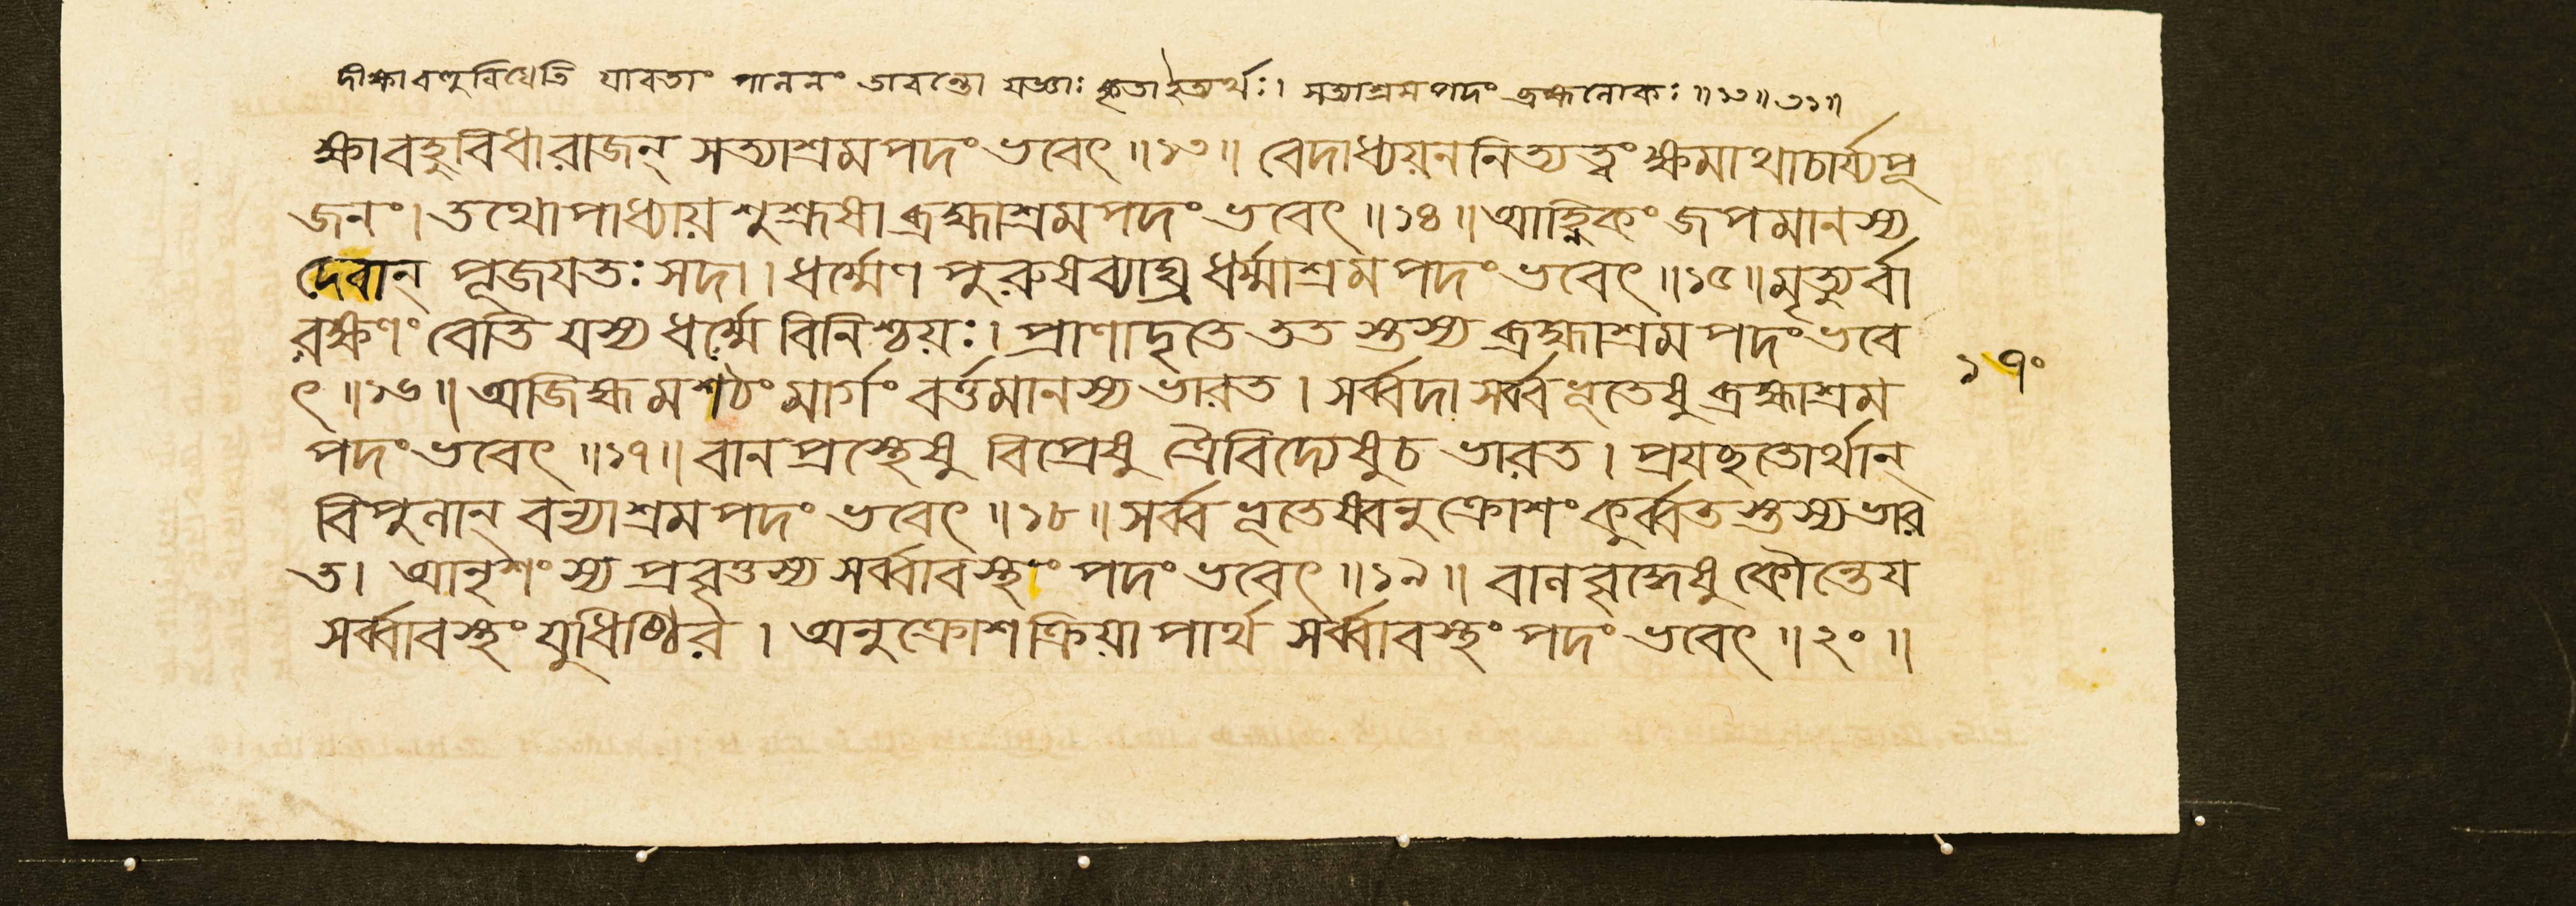 দীক্ষাবহুবিধেতি যাবতাং পালনং তাবন্তো যজ্ঞাঃ কৃতাইত্যর্থঃ। সত্যাশ্রমপদং ব্রহ্মলোকঃ ॥১৩॥
ক্ষাবহুবিধারাজন্ সত্যাশ্রমপদংভবেৎ॥১৩॥ বেদাধ্যয়ননিত্যত্বং ক্ষমাথাচার্য্যপূ
জনং। তথোপাধ্যায়শুশ্রূষা ব্রহ্মাশ্রমপদংভবেৎ॥১৪॥ আহ্নিকং জপমানস্য
দেবান্ পূজযতঃ সদা। ধর্ম্মেণ পুরুষব্যাঘ্র ধর্ম্মাশ্রমপদংভবেৎ॥১৫॥ মৃত্যুর্বা
রক্ষণং বেতি যস্য ধর্ম্মে বিনিশ্চয়ঃ। প্রাণাদৃতে তত স্তস্য ব্রহ্মাশ্রমপদংভবে
ৎ॥১৬॥ অজিহ্মমশঠং মার্গং বর্ত্তমানস্য ভারত। সর্ব্বদা সর্ব্বভূতেষু ব্রহ্মাশ্রম
পদংভবেৎ॥১৭॥ বানপ্রস্থেষু বিপ্রেষু ত্রৈবিদ্যেষুচ ভারত। প্রযছতোর্থান্
বিপুলান্ বন্যাশ্রমপদংভবেৎ॥১৮॥ সর্ব্বভূতেষ্বনুক্রোশং কুর্ব্বতস্তস্যভার
ত। আনৃশংস্যপ্রবৃত্তস্য সর্ব্বাবস্থং পদংভবেৎ॥১৯॥ বালবৃদ্ধেষু কৌন্তেয
সর্ব্বাবস্থং যুধিষ্ঠির। অনুক্রোশক্রিয়া পার্থ সর্ব্বাবস্থং পদংভবেৎ॥২০॥
১৭০